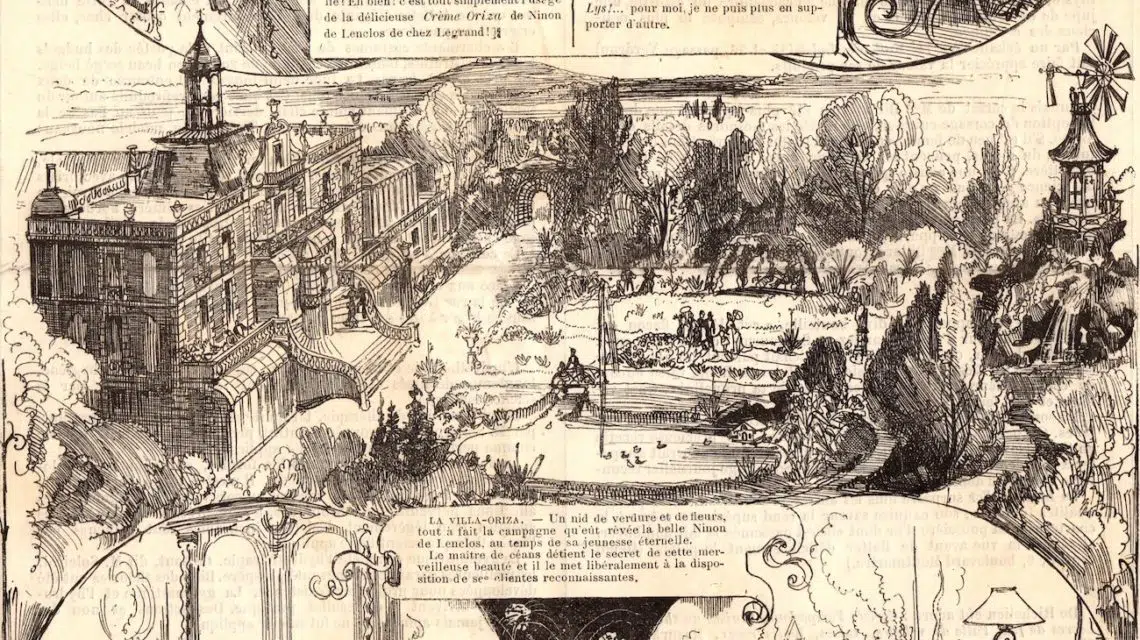 né ! Eh bien ! c'est tout simplement l'usage
de la délicieuse Crème Oriza de Ninon
de Lenclos de chez Légrand !
Lys !... pour moi, je ne puis plus en sup-
porter d'autre.
LA VILLA-ORIZA. — Un nid de verdure et de fleurs,
tout à fait la campagne qu'eût rêvée la belle Ninon
de Lenclos, au temps de sa jeunesse éternelle.
Le maître de céans détient le secret de cette mer-
veilleuse beauté et il le met libéralement à la dispo-
sition de ses clientes reconnaissantes.